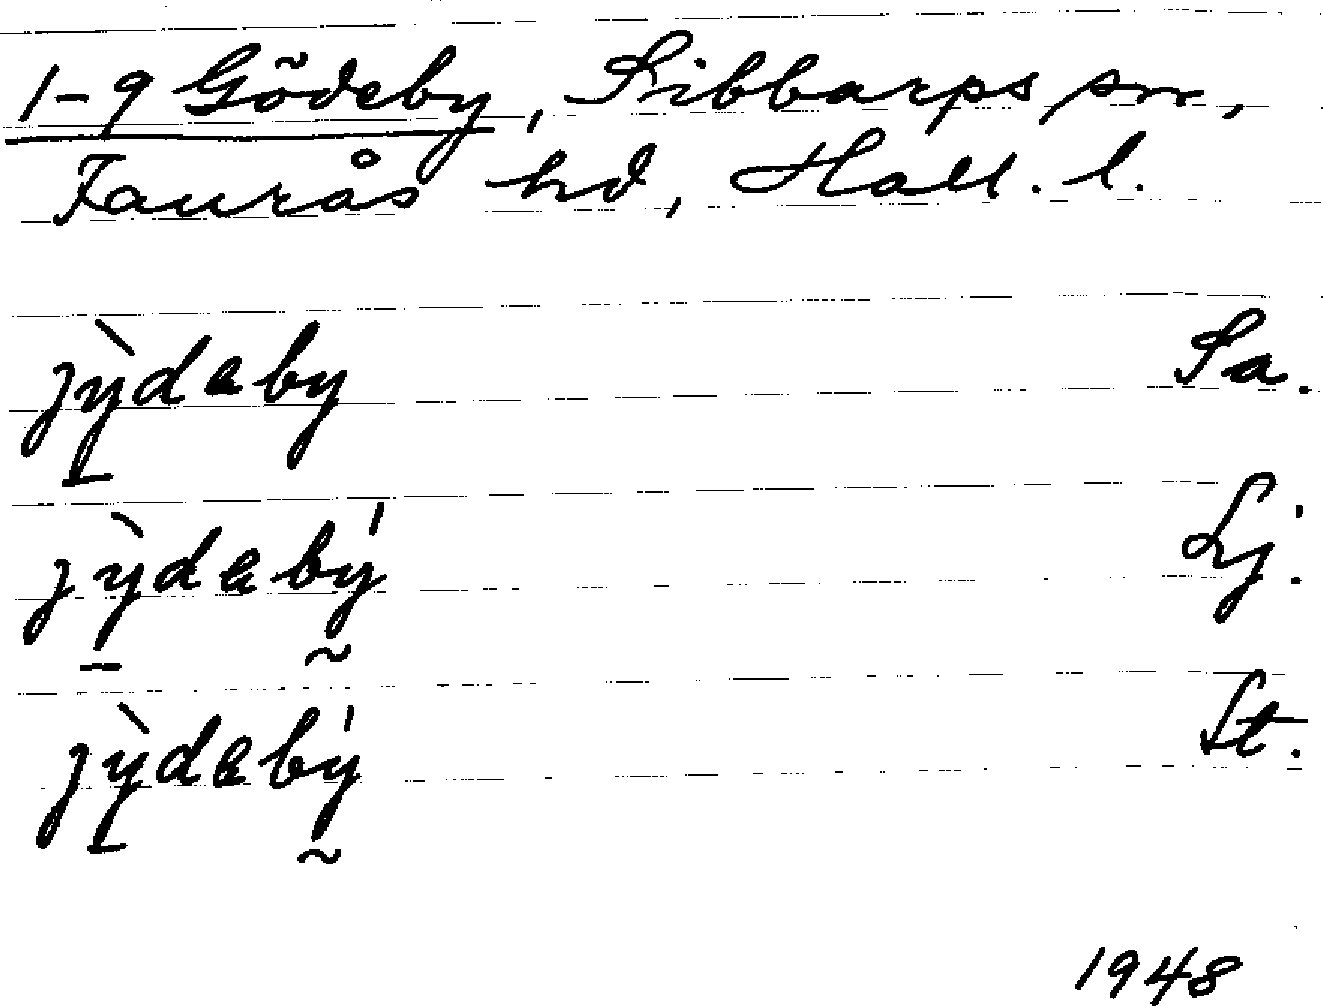 1-9 Gödeby, Sibbarps sn,
Faurås hd, Hall. l.
jỳ̠dəby Sa.
jỳ̠dəbý̰ Lj.
jỳ̠dəbý̰ St.
1948